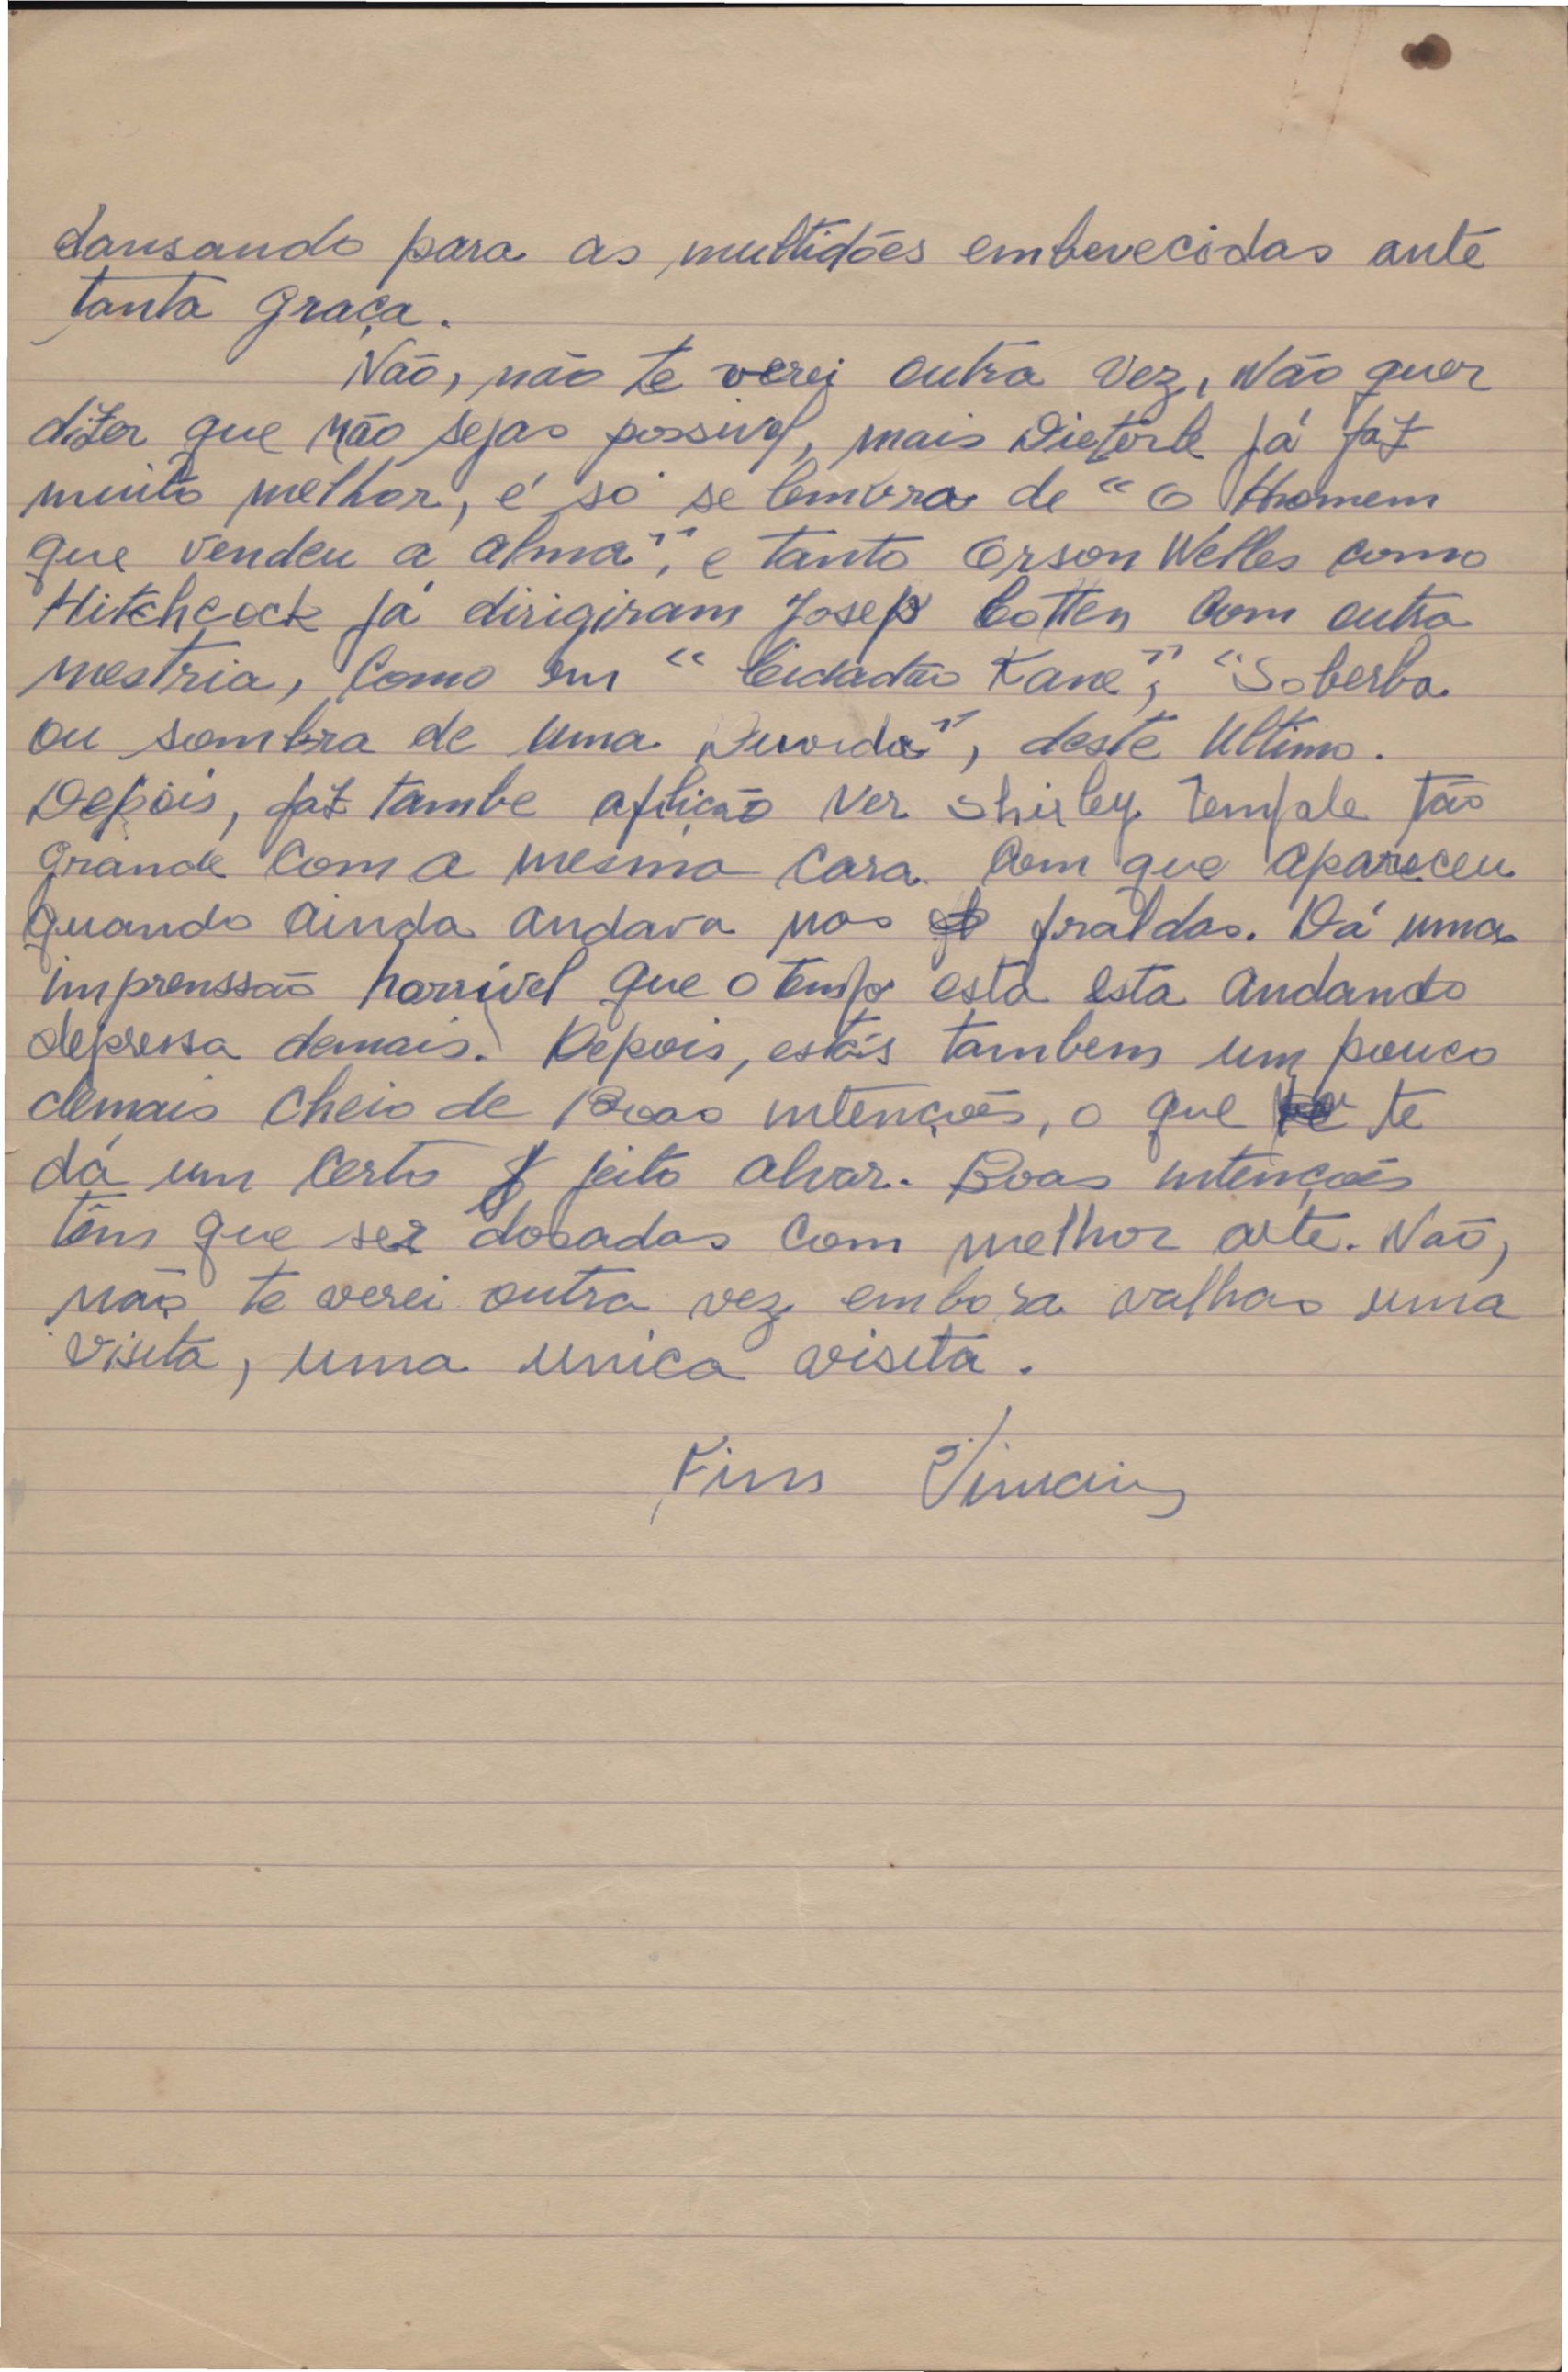 dansando para as multidões embevecidas ante
tanta graça.
Não, não te verei outra vez, Não quer
dizer que não sejas possivel, mais Dieterle já faz
muito melhor, é só se lembra de "O Homem
que vendeu a alma", e tanto Orson Welles como
Hitchcock já dirigiram Josep Cotten com outra
mestria, como em "Cidadão Kane", "Soberba
ou sombra de uma", deste Ultimo.
Depois, faz tambe aflicão ver Shirley Temple tão
grande com a mesma cara com que apareceu
quando ainda andava nas fraldas. Dá uma
imprenssão horrivel que o tempo está esta andando
depressa demais. Depois, estás tambem um pouco
demais cheio de Boas intenções, o que te
dá um certo jeito alvar. Boas intenções
têm que ser dosadas com melhor arte. Não,
não te verei outra vez embora valhas uma
visita, uma unica visita.
Fim